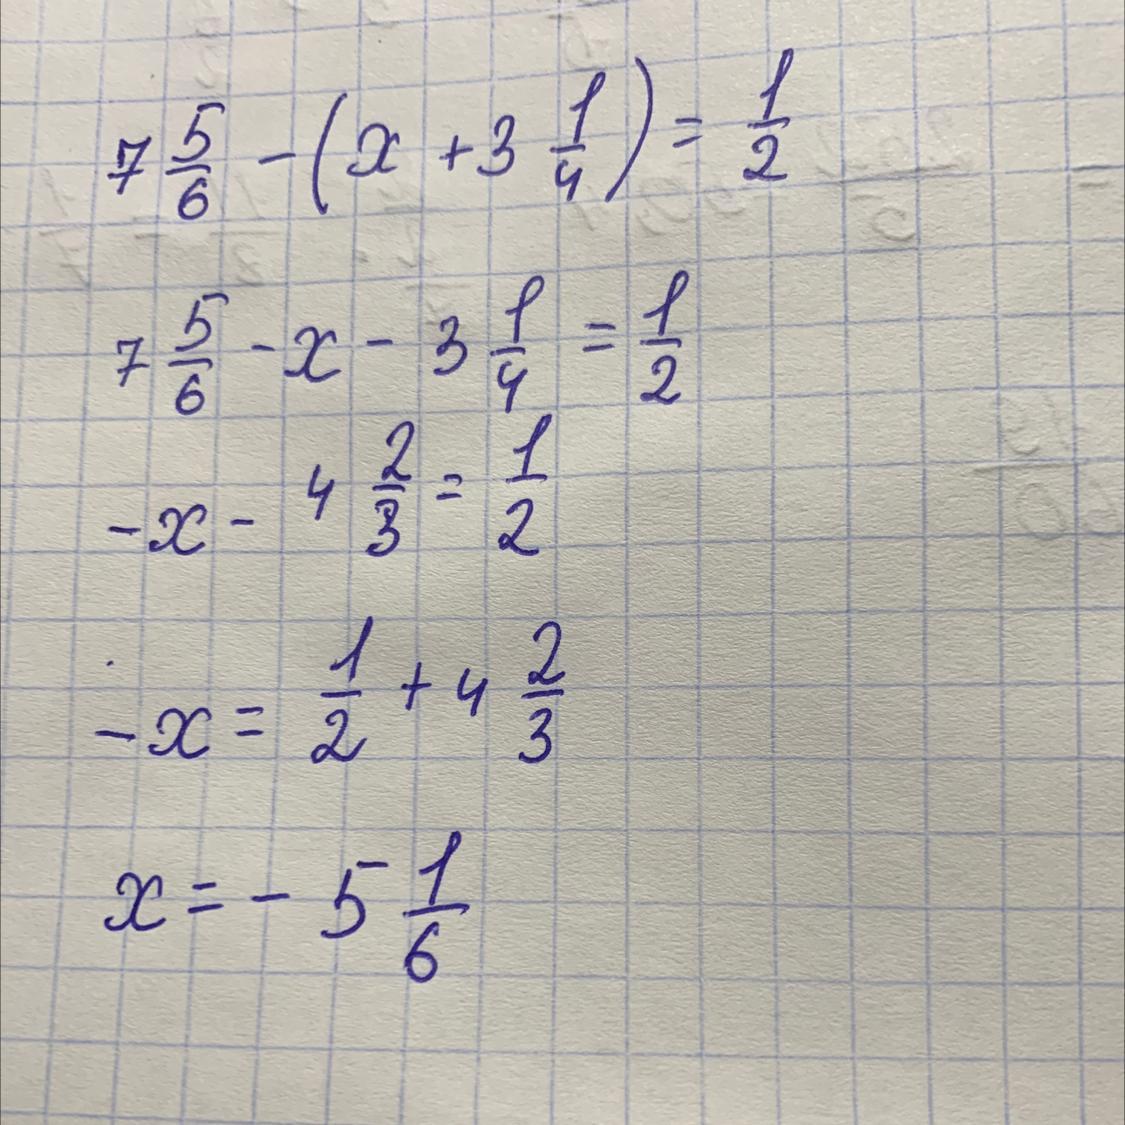 7 5/6 - (x + 3 1/4) = 1/2
7 5/6 - x - 3 1/4 = 1/2
-x - 4 2/3 = 1/2
-x = 1/2 + 4 2/3
x = - 5 1/6